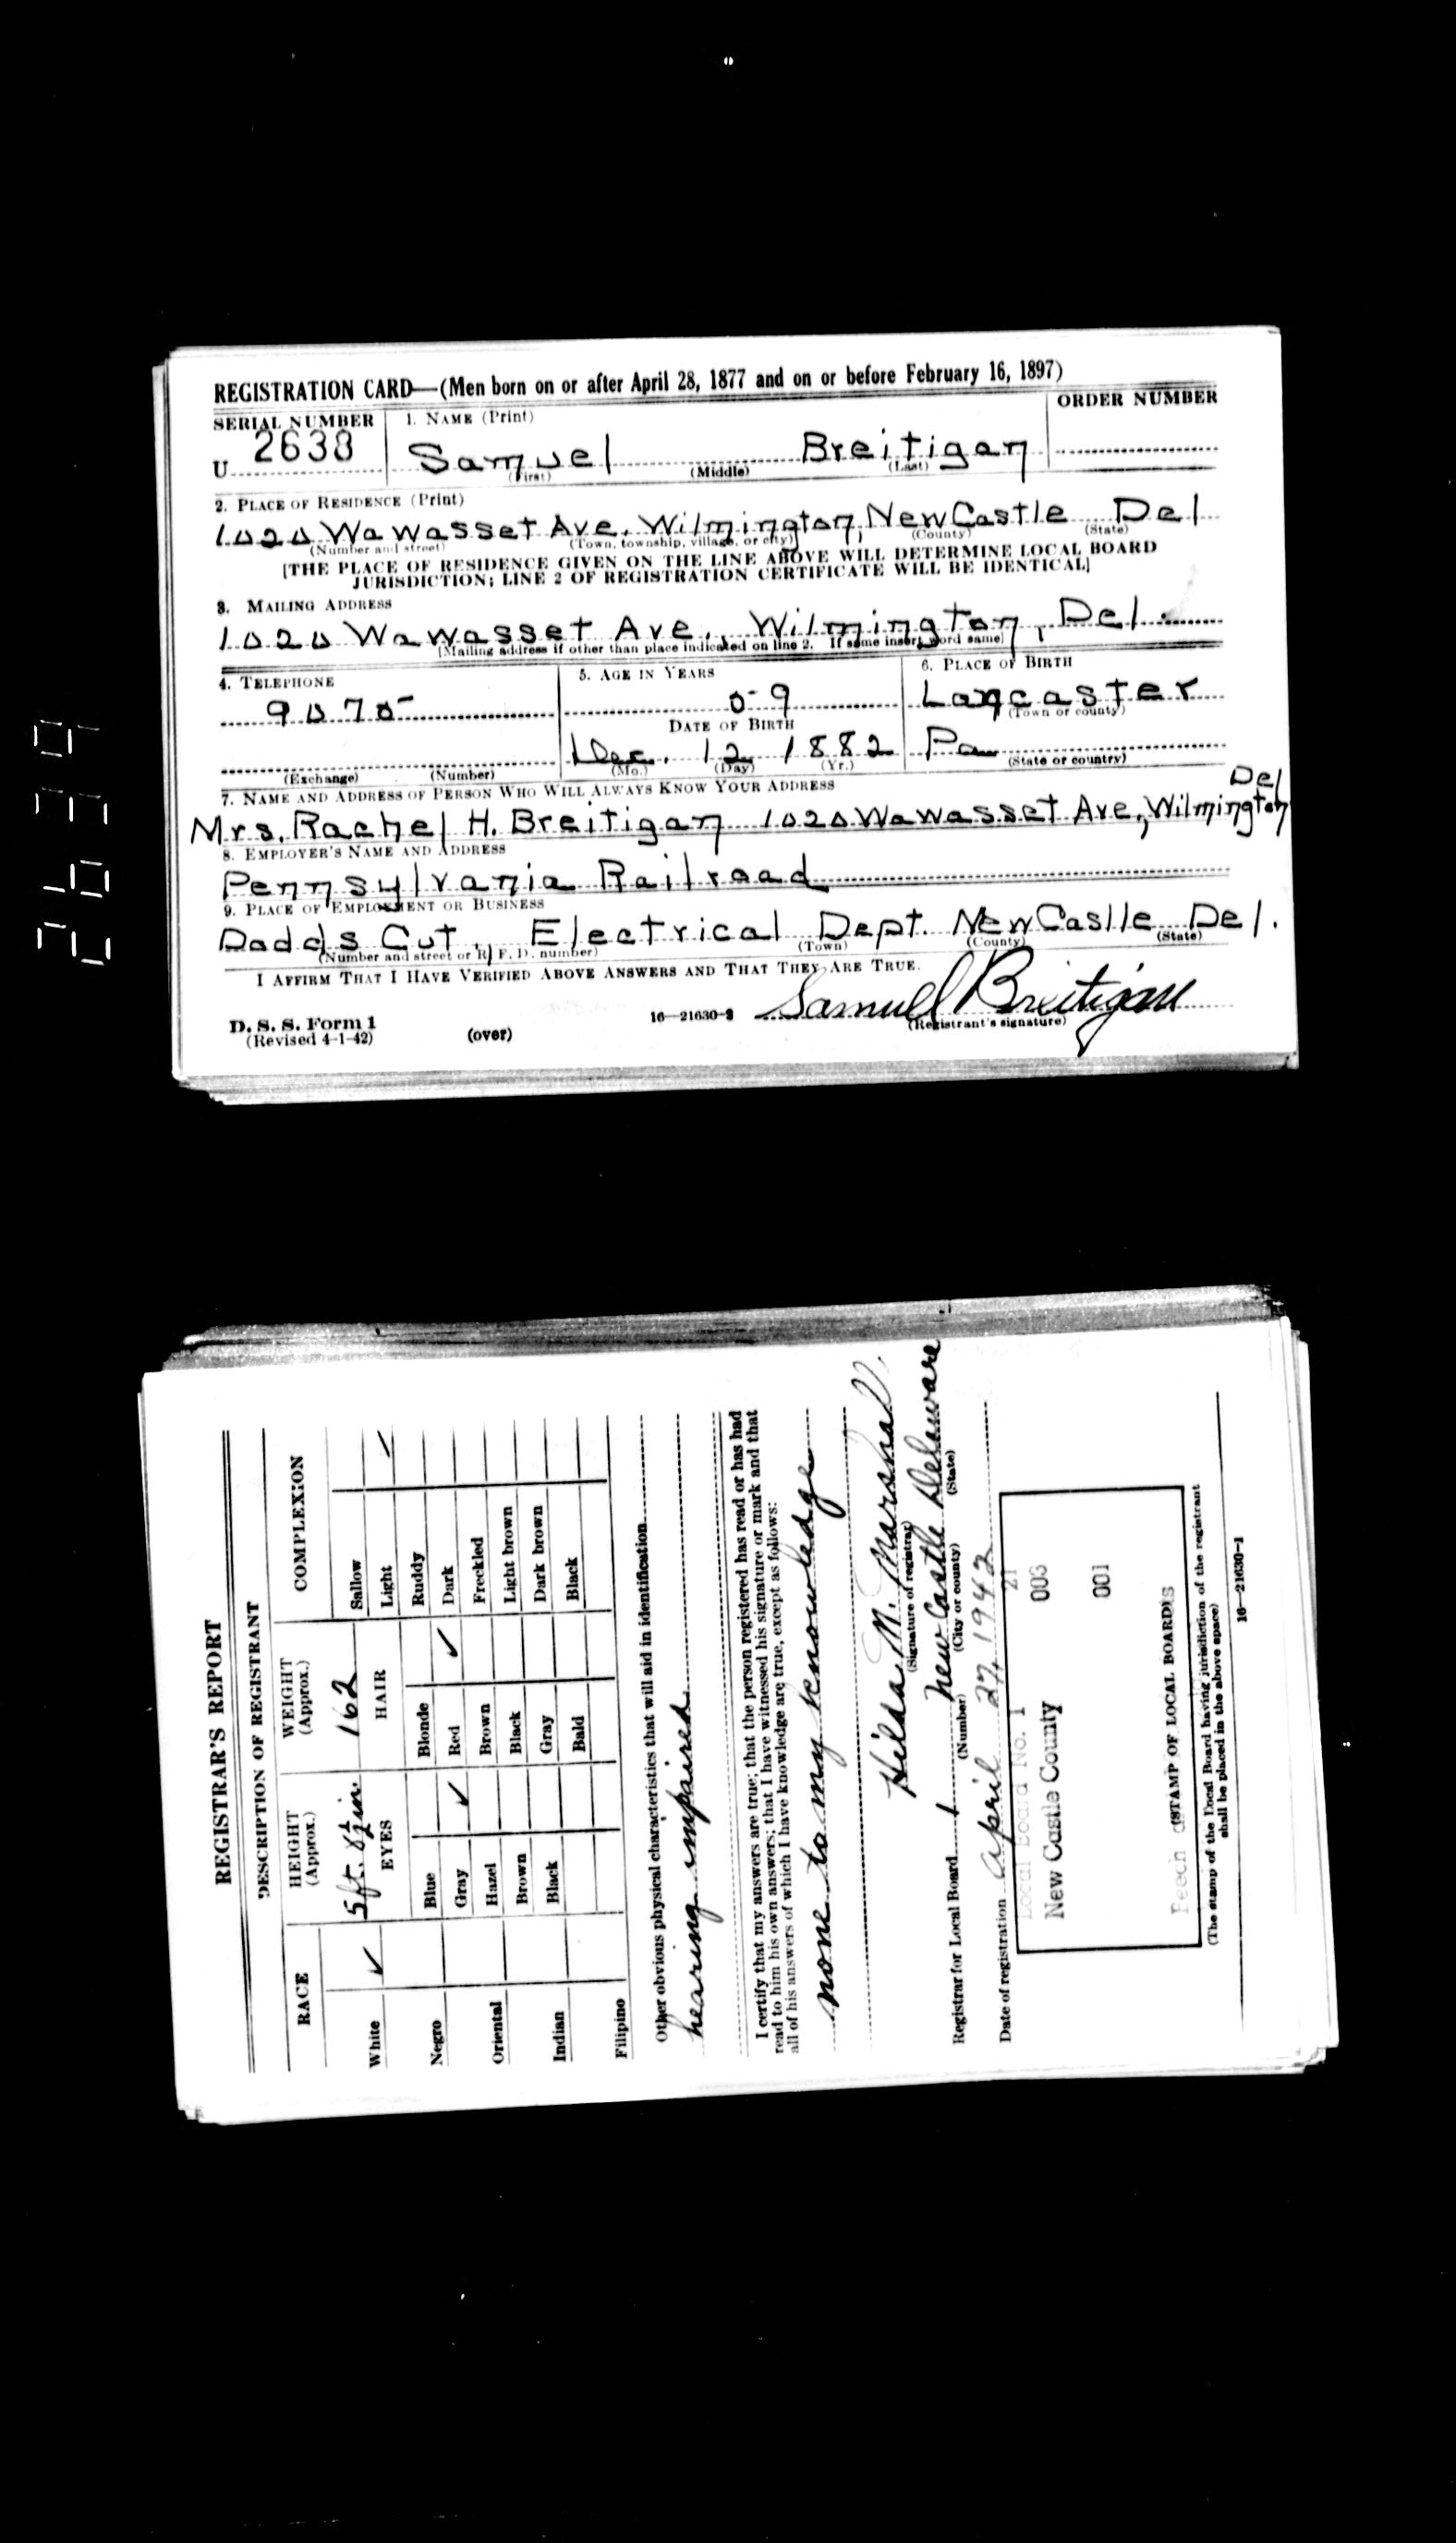 REGISTRATION CARD—(Men born on or after April 28, 1877 and on or before February 16, 1897)
SERIAL NUMBER
1. NAME (Print)
ORDER NUMBER
U 2638
Samuel Breitigan
(First) (Middle) (Last)
2. PLACE OF RESIDENCE (Print)
1020 Wawasset Ave, Wilmington, New Castle Del
(Number and street) (Town, township, village, or city) (County) (State)
[THE PLACE OF RESIDENCE GIVEN ON THE LINE ABOVE WILL DETERMINE LOCAL BOARD
JURISDICTION; LINE 2 OF REGISTRATION CERTIFICATE WILL BE IDENTICAL]
3. MAILING ADDRESS
1020 Wawasset Ave., Wilmington, Del.
[Mailing address if other than place indicated on line 2. If same insert word same]
4. TELEPHONE
5. AGE IN YEARS
6. PLACE OF BIRTH
59
Lancaster
(Town or county)
DATE OF BIRTH
Dec. 12 1882
Pa
(Exchange) (Number)
(Mo.) (Day) (Yr.)
(State or country)
7. NAME AND ADDRESS OF PERSON WHO WILL ALWAYS KNOW YOUR ADDRESS
Del
Mrs. Rachel H. Breitigan 1020 Wawasset Ave, Wilmington
8. EMPLOYER'S NAME AND ADDRESS
Pennsylvania Railroad
9. PLACE OF EMPLOYMENT OR BUSINESS
Dadds Cut, Electrical Dept. New Caslle Del.
(Number and street or R. F. D. number) (Town) (County) (State)
I AFFIRM THAT I HAVE VERIFIED ABOVE ANSWERS AND THAT THEY ARE TRUE.
Samuel Breitigan
D. S. S. Form 1
(Revised 4-1-42)
(over)
16—21630-2
(Registrant's signature)
REGISTRAR'S REPORT
DESCRIPTION OF REGISTRANT
RACE
HEIGHT
(Approx.)
WEIGHT
(Approx.)
COMPLEXION
5 ft. 8½ in.
162
EYES
HAIR
White ✓
Negro
Oriental
Indian
Filipino
Blue
Gray ✓
Hazel
Brown
Black
Blonde
Red ✓
Brown
Black
Gray
Bald
Sallow
Light ✓
Ruddy
Dark
Freckled
Light brown
Dark brown
Black
Other obvious physical characteristics that will aid in identification
hearing impaired
I certify that my answers are true; that the person registered has read or has had
read to him his own answers; that I have witnessed his signature or mark and that
all of his answers of which I have knowledge are true, except as follows:
none to my knowledge
Hilda M. Marshall
(Signature of registrar)
Registrar for Local Board 1 New Castle Delaware
(Number) (City or county) (State)
Date of registration April 27, 1942
Local Board No. 1 21
New Castle County 003
001
(STAMP OF LOCAL BOARD)
(The stamp of the Local Board having jurisdiction of the registrant
shall be placed in the above space)
16—21630-1